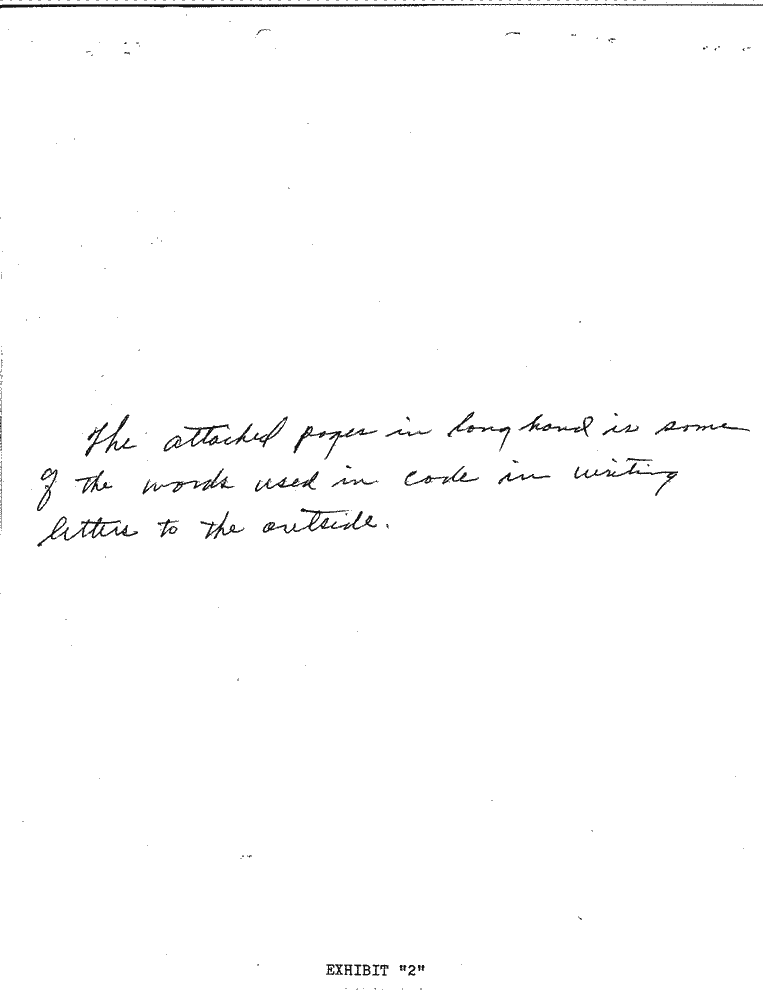 The attached pages in long hand is some
of the words used in code in writing
letters to the outside.
EXHIBIT "2"